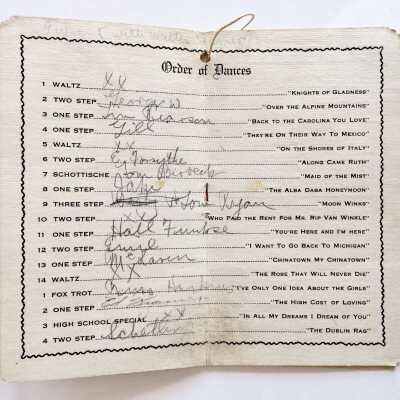 Order of Dances
1 WALTZ XX "KNIGHTS OF GLADNESS"
2 TWO STEP George W "OVER THE ALPINE MOUNTAINS"
3 ONE STEP Pearson "BACK TO THE CAROLINA YOU LOVE"
4 ONE STEP Gill "THEY'RE ON THEIR WAY TO MEXICO"
5 WALTZ XX "ON THE SHORES OF ITALY"
6 TWO STEP E. Forsythe "ALONG CAME RUTH"
7 SCHOTTISCHE "MAID OF THE MIST"
8 ONE STEP "THE ALBA DABA HONEYMOON"
9 THREE STEP Ryan "MOON WINKS"
10 TWO STEP XX "WHO PAID THE RENT FOR MR. RIP VAN WINKLE"
11 ONE STEP Hall "YOU'RE HERE AND I'M HERE"
12 TWO STEP "I WANT TO GO BACK TO MICHIGAN"
13 ONE STEP "CHINATOWN MY CHINATOWN"
14 WALTZ XX "THE ROSE THAT WILL NEVER DIE"
1 FOX TROT "I'VE ONLY ONE IDEA ABOUT THE GIRLS"
2 ONE STEP "THE HIGH COST OF LOVING"
3 HIGH SCHOOL SPECIAL XX "IN ALL MY DREAMS I DREAM OF YOU"
4 TWO STEP "THE DUBLIN RAG"